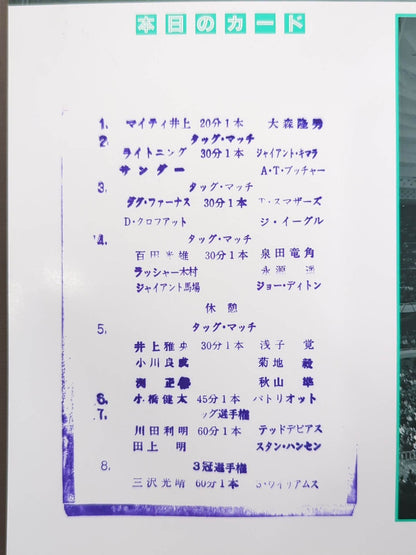 本日のカード
1. マイティ井上 20分1本 大森隆男
2. タッグ・マッチ
ライトニング 30分1本 ジャイアント・キマラ
サンダー A・T・ブッチャー
3. タッグ・マッチ
ダグ・ファーナス 30分1本 T・スマザーズ
D・クロファット ジ・イーグル
4. タッグ・マッチ
百田光雄 30分1本 泉田竜角
ラッシャー木村 永源遙
ジャイアント馬場 ジョー・ディトン
休憩
5. タッグ・マッチ
井上雅央 30分1本 浅子覚
小川良成 菊地毅
渕正信 秋山準
6. 小橋健太 45分1本 パトリオット
7. ッグ選手権
川田利明 60分1本 テッドデビアス
田上明 スタン・ハンセン
8. 3冠選手権
三沢光晴 60分1本 S・ウイリアムス